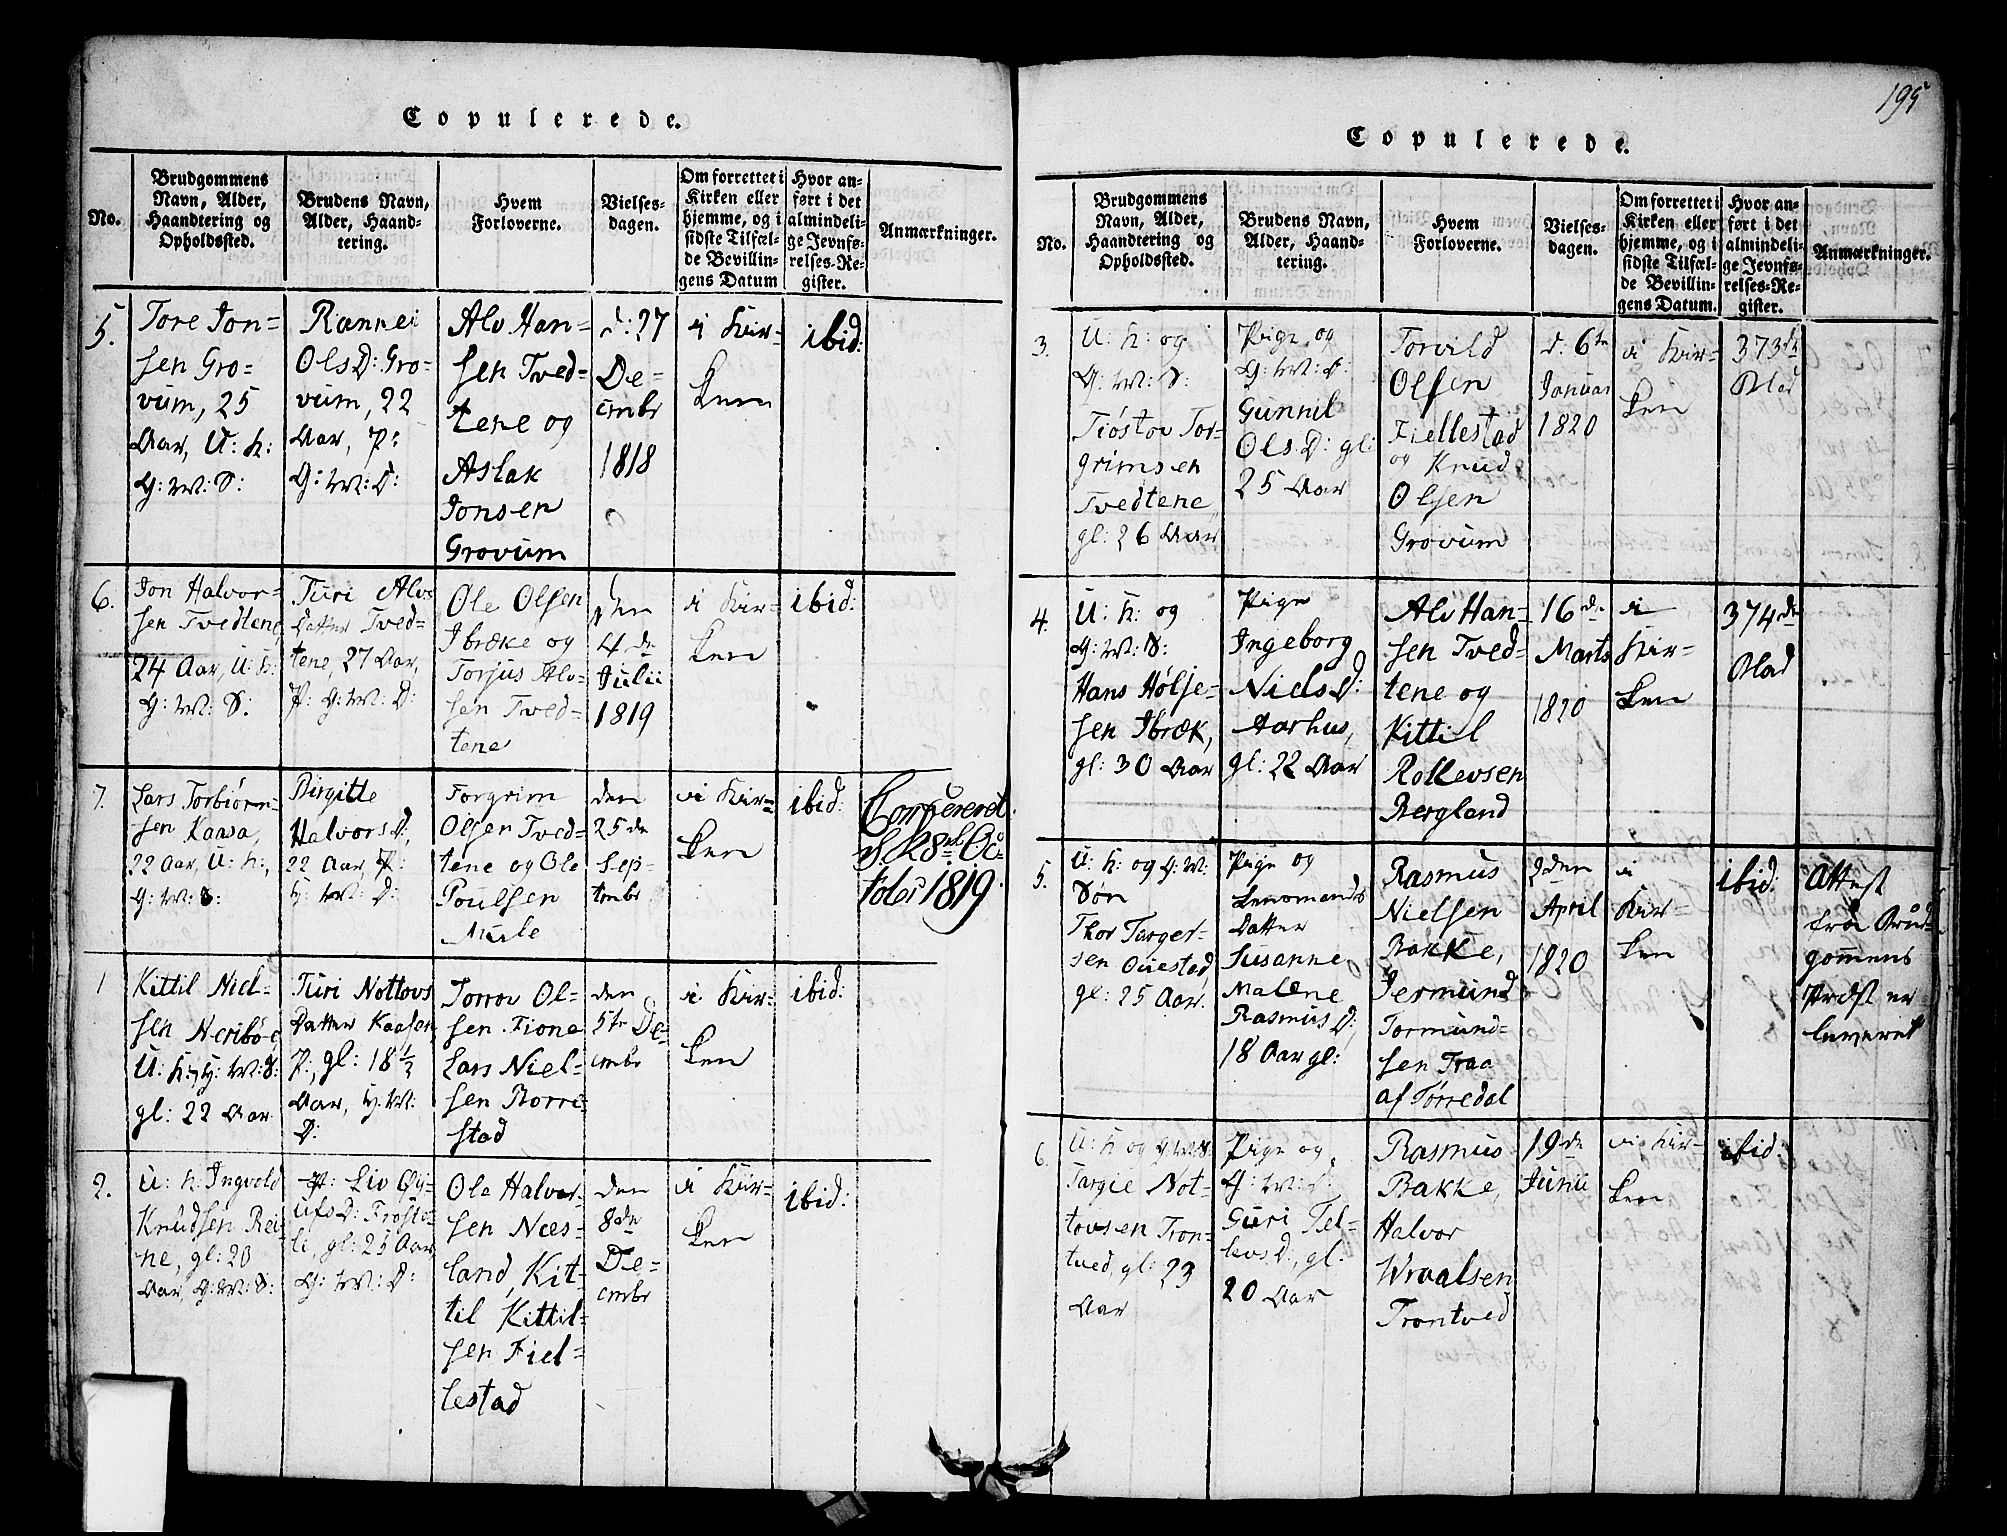 Copulerede.
No.
Brudgommens
Navn, Alder,
Haandtering og
Opholdssted.
Brudens Navn,
Alder, Haand-
tering.
Hvem
Forloverne.
Vielses-
dagen.
Om forrettet i
Kirken eller
hjemme, og i
sidste Tilfæl-
de Bevillin-
gens Datum
Hvor an-
ført i det
almindeli-
ge Jevnfø-
relses-Re-
gister.
Anmærkninger.
5.
Tore Jon=
sen Gro=
vum, 25
Aar, U: K:
G: M: S:
Rannei
Ols D: Gro-
vum, 22
Aar, P:
G: M: D:
Alv Han=
sen Tved=
tene og
Aslak
Jonsen
Grovum
d: 27
De-
cmbr
1818
i Kir=
ken
ibid:
6.
Jon Halvor=
sen Tvedtene,
24 Aar, U: K:
G: M: S:
Turi Alvs
Datter Tved=
tene, 27 Aar,
P: G: M: D:
Ole Olsen
Ibræke og
Torjus Alv-
sen Tved=
tene
den
4de
Julii
1819
i Kir=
ken
ibid:
7.
Lars Torbiørn=
sen Kaasa,
22 Aar, U: K:,
G: M: S:
Birgitte
Halvors D:,
22 Aar, P:
G: M: D:
Torgrim
Olsen Tved=
tene og Ole
Poulsen
Mirle
den
25de
Sep=
tembr
i Kir=
ken
ibid:
Confereret
1819.
1
Kittil Niel=
sen Neribøe,
U: K:, G: M: S:
gl: 22 Aar
Turi Nottovs
Datter Kaasen,
P:, gl: 18 1/2
Aar, G: M:
D:
Torrov Ol=
sen Fione
Lars Niel=
sen Borre
stad
den
5te De-
cmbr
i Kir=
ken
ibid:
2.
U: K: Ingvold
Knudsen Rei
ne, gl: 20
Aar, G: M: S:
P: Liv Gy-
ufs D: Frøsto-
li, gl: 25 Aar
G: M: D:
Ole Halvor-
sen Næs=
land, Kit=
til Kittil=
sen Fiel=
lestad
den
8de
De-
cmbr
i Kir=
ken
ibid:
195
Copulerede.
No.
Brudgommens
Navn, Alder,
Haandtering og
Opholdssted.
Brudens Navn,
Alder, Haand-
tering.
Hvem
Forloverne.
Vielses-
dagen.
Om forrettet i
Kirken eller
hjemme, og i
sidste Tilfæl-
de Bevillin-
gens Datum.
Hvor an-
ført i det
almindeli-
ge Jevnfø-
relses-Re-
gister.
Anmærkninger.
3.
U: K: og
G: M: S:
Tiøstov Tor=
grimsen
Tvedtene,
gl: 26 Aar
Pige og
G: M: D:
Gunnil
Ols D: gl:
25 Aar
Torvild
Olsen
Fiellestad
og Knud
Olsen
Grovum
d. 6te
Januar
1820
i Kir=
ken
373de
Blad
4.
U: K: og
G: M: S:
Hans Hølje=
sen Ibræk,
gl: 30 Aar
Pige
Ingeborg
Niels D:
Aarhus,
gl: 22 Aar
Alv Han=
sen Tved=
tene og
Kittil
Rollevsen
Bergland
16de
Marts
1820
i
Kir=
ken
374de
Blad
5.
U: K: og G: M:
Søn
Thor Targer-
sen Ouestad,
gl: 25 Aar.
Pige og
Lensmands
Datter
Susanne
Malene
Rasmus D:,
18 Aar gl:
Rasmus
Nielsen
Bakke,
Jermund
Tormund=
sen Traa
af Tørredal
2den
April
1820
i
Kir=
ken
ibid:
Attest
fra Brud=
gommens
Præst er
leveret
6.
U: K og G: M: S:
Targie Not=
tovsen Tron=
tved, gl: 23
Aar
Pige og
G: M: D:
Guri Tel=
levs D:, gl:
20 Aar
Rasmus
Bakke,
Halvor
Wraalsen
Trontved
19de
Junii
i Kir=
ken
ibid: